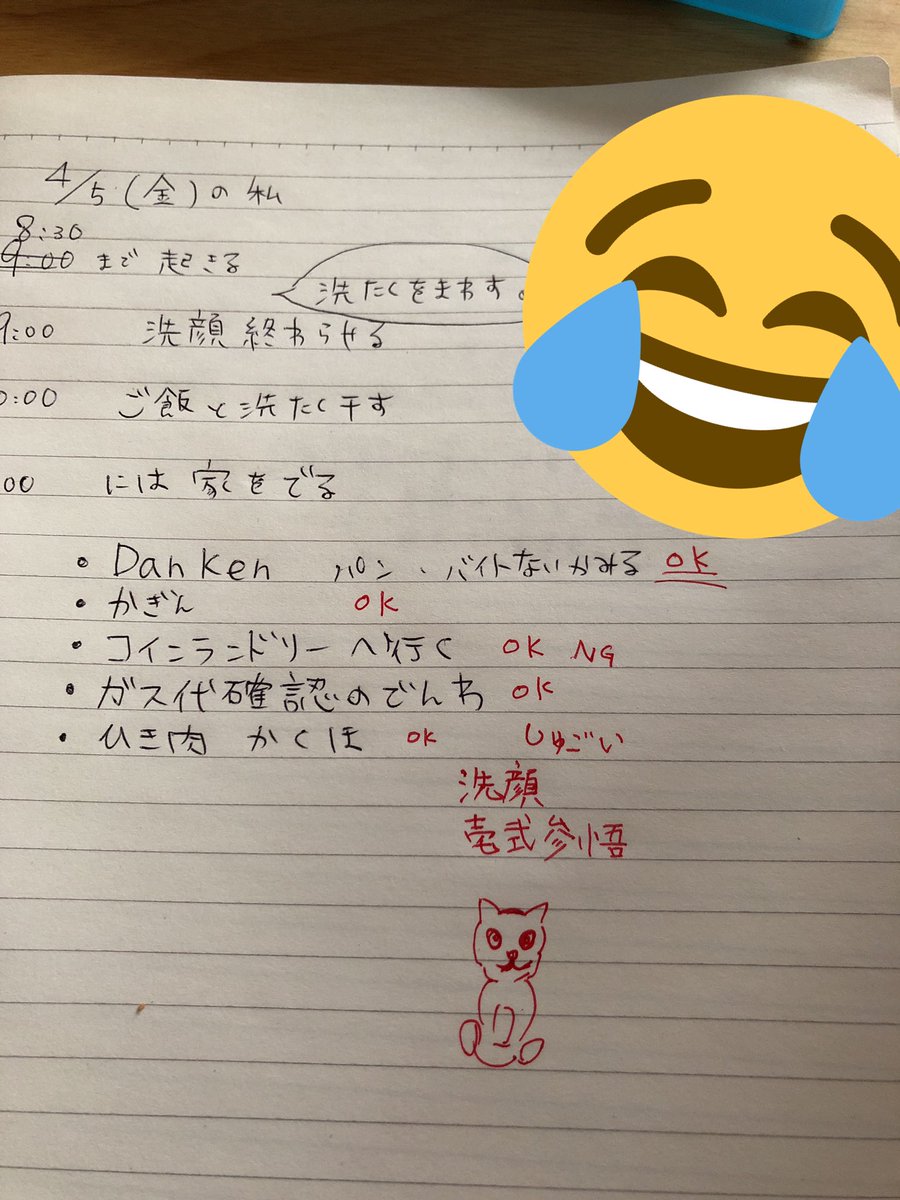 4/5(金)の私
8:30
9:00 まで 起きる
洗たくをまわす。
9:00 洗顔終わらせる
0:00 ご飯と洗たく干す
00 には 家をでる
・Danken パン・バイトないかみる OK
・かぎん OK
・コインランドリーへ行く OK NG
・ガス代確認のでんわ OK
・ひき肉 かくほ OK しゅごい
洗顔
壱弐参悟